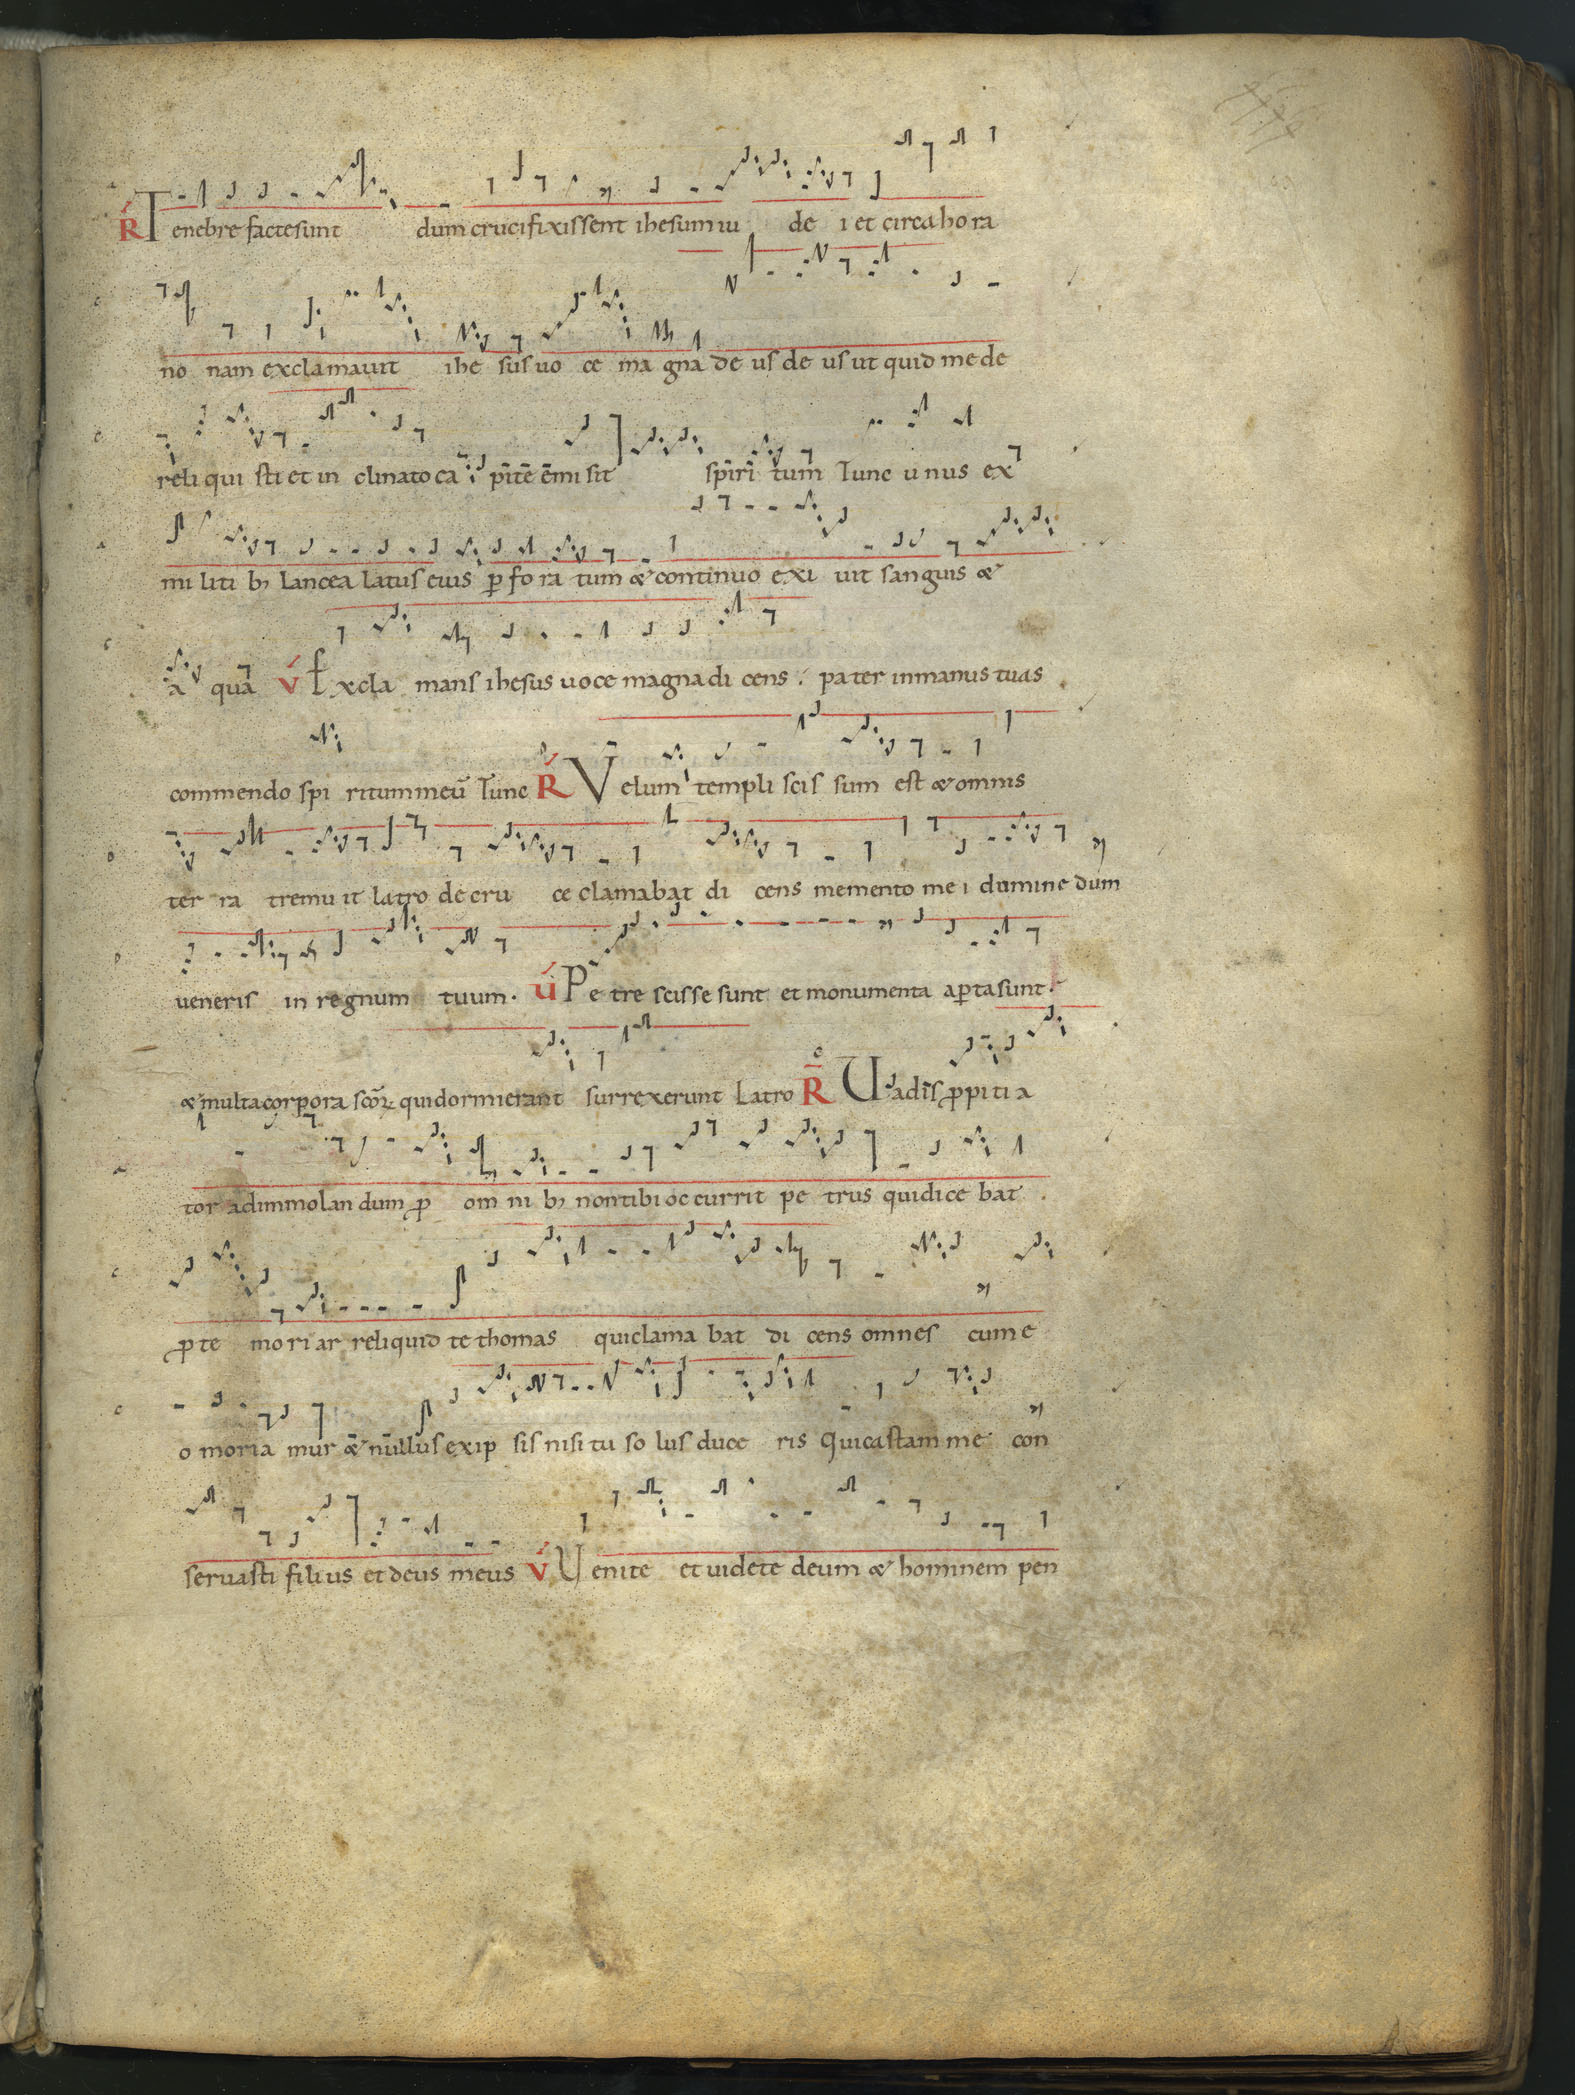 R Tenebre facte sunt dum crucifixissent ihesum iu de i et circa ho ra
no nam exclamauit ihe sus uo ce ma gna de us de us ut quid me de
reli qui sti et in clinato ca pite emi sit spiri tum Tunc u nus ex
mi liti b; lancea latus eius p fo ra tum & continuo exi uit sanguis &
a qua V Excla mans ihesus uoce magna di cens : pater in manus tuas
commendo spi ritum meū Tunc R Velum templi scis sum est & omnis
ter ra tremu it latro de cru ce clamabat di cens memento me i domine dum
ueneris in regnum tuum. V Petre scisse sunt et monumenta aperta sunt
& multa corpora scōr qui dormierant surrexerunt Latro R Uadis ppiti a
tor ad immolan dum p om ni b; non tibi oc currit pe trus qui dice bat
p te mori ar reliquid te thomas qui clama bat di cens omnes cum e
o moria mur & nullus ex ip sis nisi tu so lus duce ris Qui castam me con
seruasti filius et deus meus V Uenite et uidete deum & hominem pen